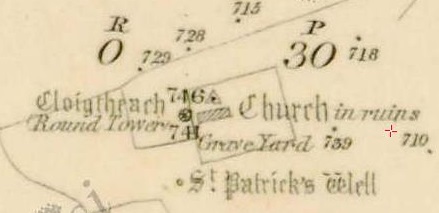 715
R P
728
0 729 30 718
746
Cloigtheach Church in ruins
Round Tower 741
Grave Yard 739 710
St. Patrick's Well